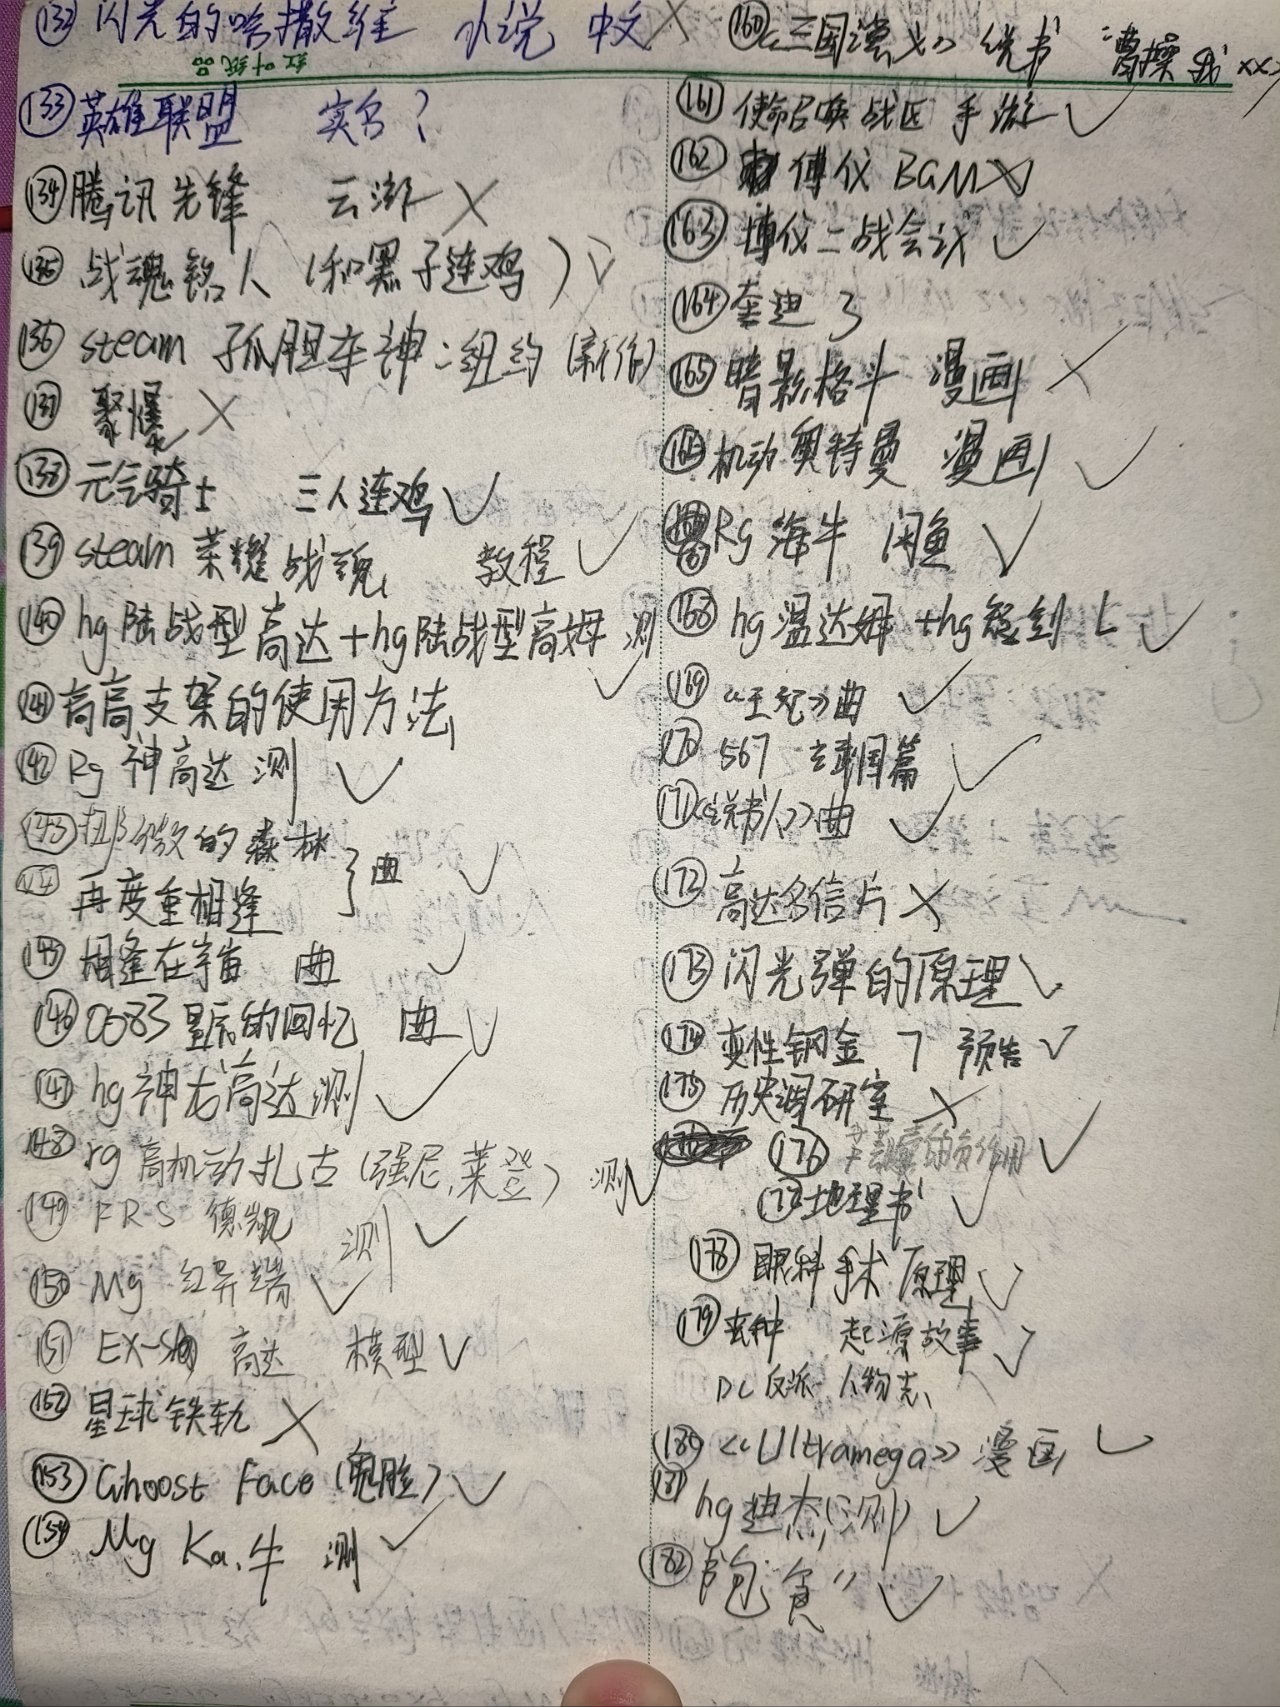 132 闪光的哈撒维 小说 中文 ×
红叶纸品
133 英雄联盟 实名?
134 腾讯先锋 云游 ×
135 战魂铭人(和黑子连鸡) ✓
136 steam 孤胆车神:纽约(新作)
137 聚爆 ×
138 元气骑士 三人连鸡 ✓
139 steam 荣耀战魂 教程 ✓
140 hg陆战型高达+hg陆战型高姆 测 ✓
141 高高支架的使用方法
142 Rg 神高达 测 ✓
143 的森林
144 再度重相逢 } 曲 ✓
145 相逢在宇宙 曲 ✓
146 0083 星辰的回忆 曲 ✓
147 hg 神右高达 测 ✓
148 rg 高机动扎古(强尼,莱登) 测 ✓
149 FRS 德凯 测 ✓
150 Mg 红异端 ✓
151 EX-S 高达 模型 ✓
152 星球铁轨 ×
153 Ghoost Face(鬼脸) ✓
154 Mg Ka.牛 测 ✓
160 《三国演义》 统书 "曹操 ××
161 使命召唤战区 手游 ✓
162 傅仪 BGM ×
163 博仪二战会议 ✓
164 奎迪 3
165 暗影格斗 漫画 ×
166 机动奥特曼 漫画 ✓
Rg 海牛 闲鱼 ✓
168 hg 温达姆 +hg ✓
169 《王妃》曲 ✓
170 567 篇 ✓
171 《说书人》曲 ✓
172 高达名信片 ×
173 闪光弹的原理 ✓
174 变性钢金 7 预告 ✓
175 历史调研室 ×
176 的负作用 ✓
177 地理书 ✓
178 眼科手术原理 ✓
179 起源故事 ✓
DC 反派人物志
180 《Ultramega》漫画 ✓
181 hg 迪杰(测) ✓
182 "饱食" ✓